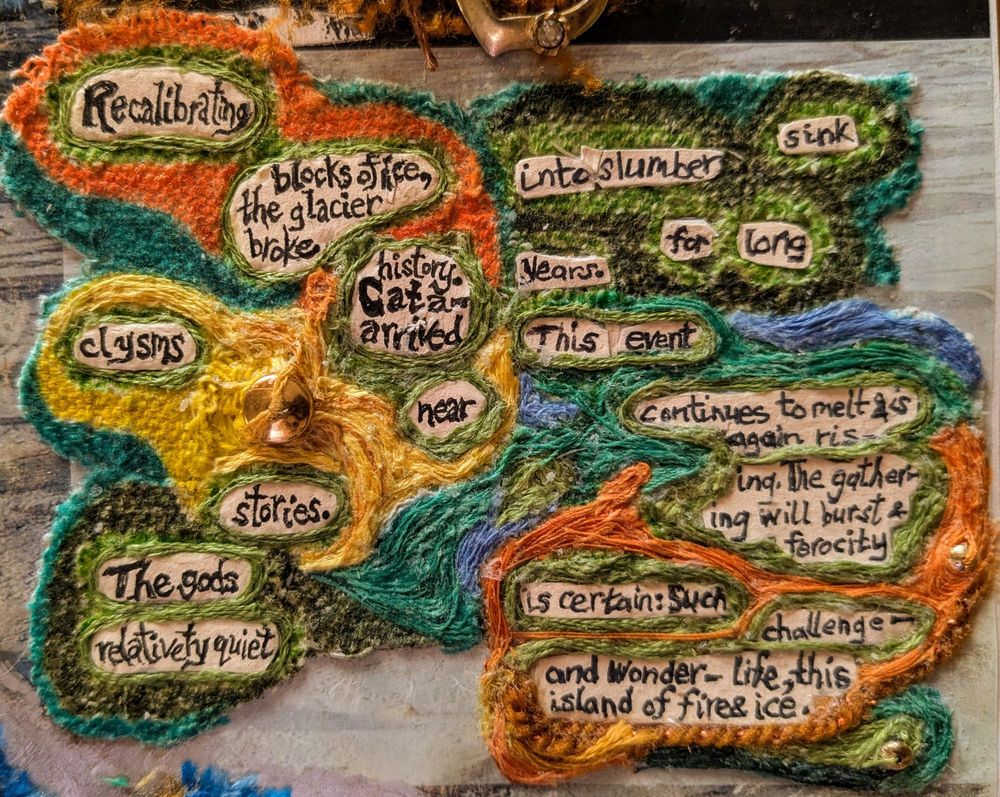 Recalibrating
blocks of ice,
the glacier
broke
history.
Cata-
arrived
clysms
near
stories.
The gods
relatively quiet
sink
into slumber
for long
years.
This event
continues to melt & is
again ris-
ing. The gather-
ing will burst &
ferocity
is certain: Such
challenge-
and wonder- life, this
island of fire & ice.